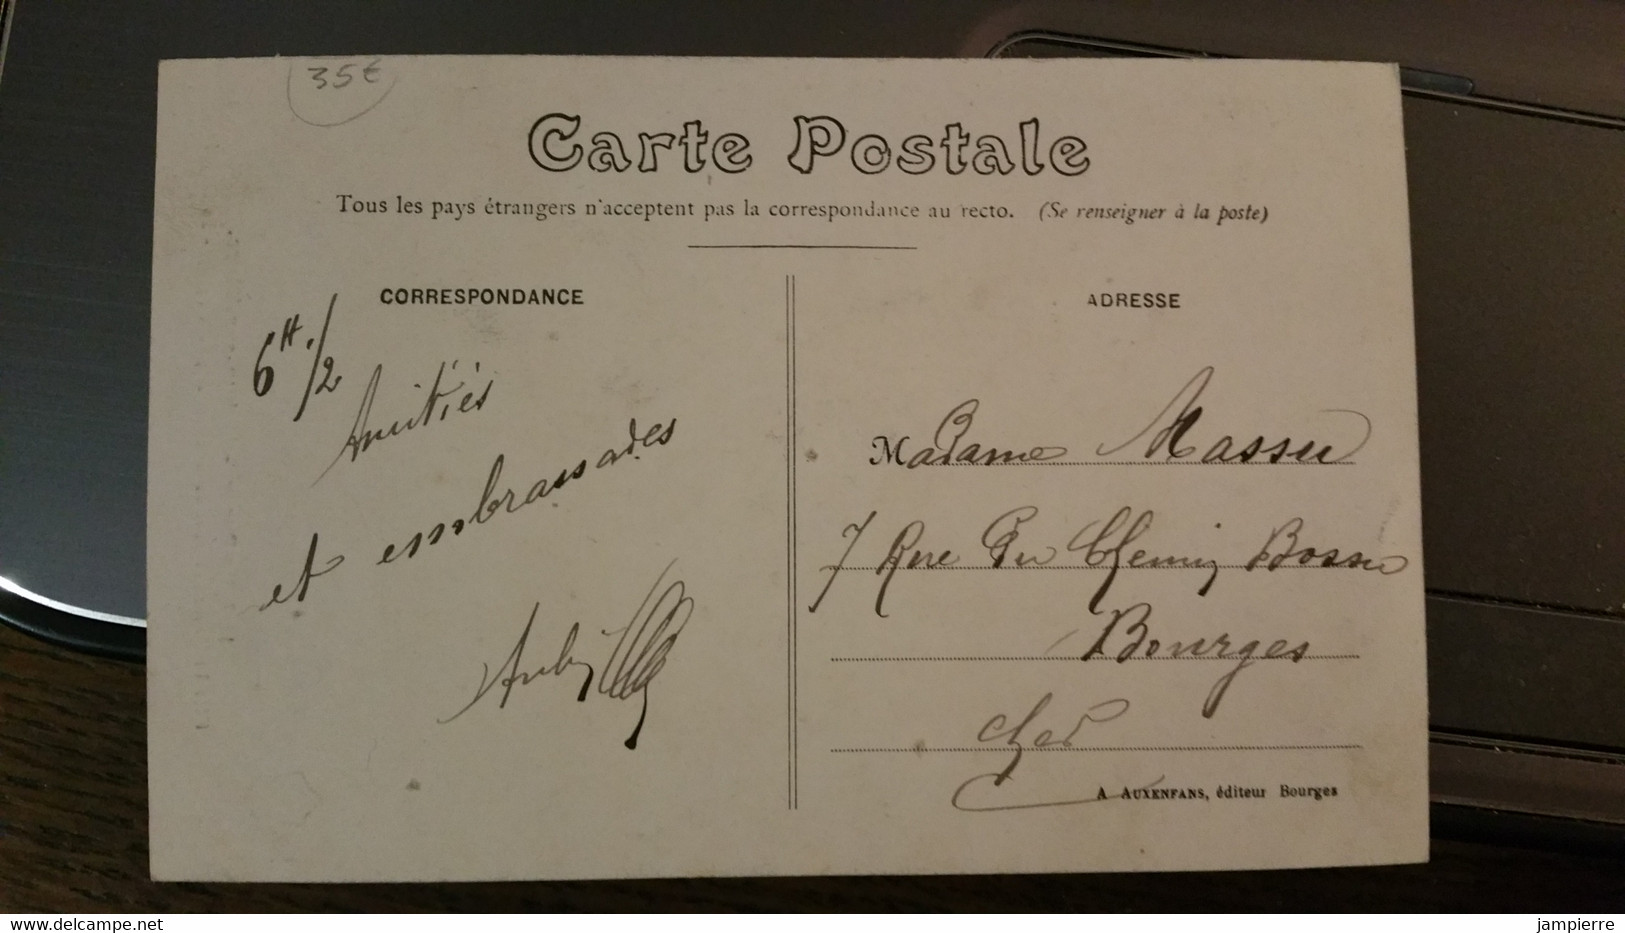 35€
Carte Postale
Tous les pays étrangers n'acceptent pas la correspondance au recto. (Se renseigner à la poste)
CORRESPONDANCE
6H. 1/2
Amitiés
et embrassades
ADRESSE
Madame Massu
7 Rue Du Chemin Bossu
Bourges
Cher
A AUXENFANS, éditeur Bourges
www.delcampe.net
jampierre